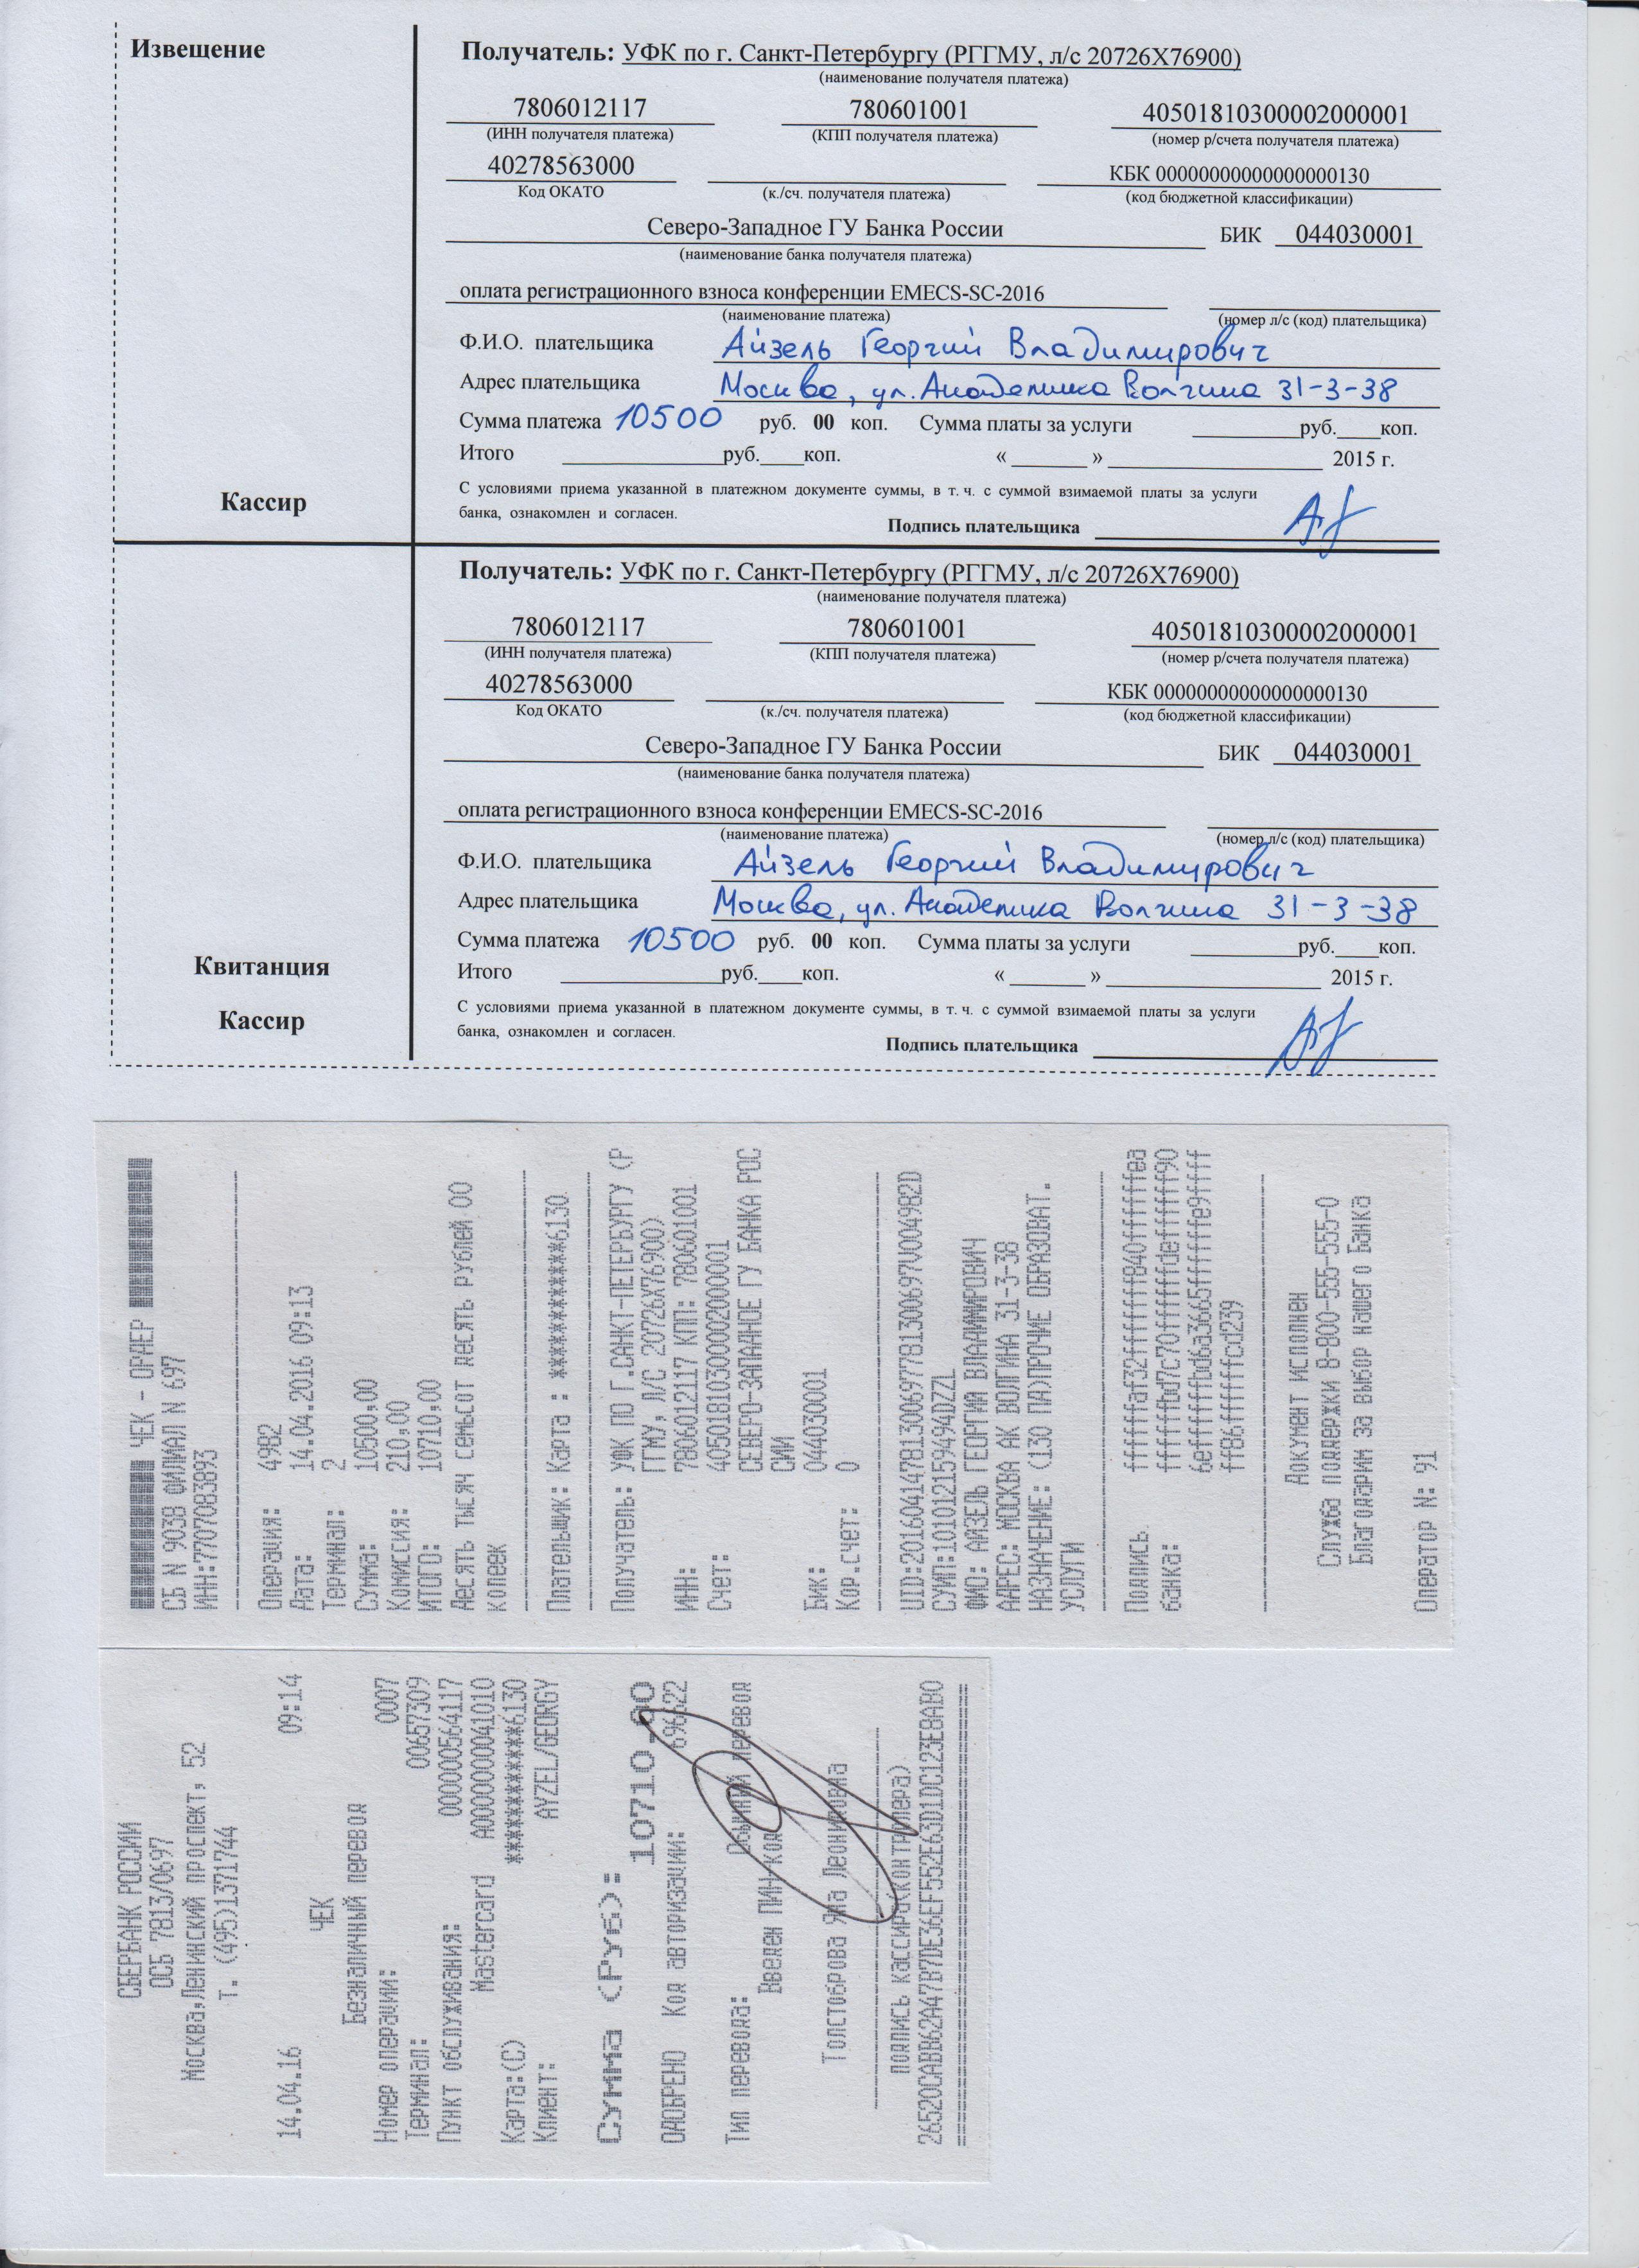 Извещение
Получатель: УФК по г. Санкт-Петербургу (РГГМУ, л/с 20726Х76900)
(наименование получателя платежа)
7806012117 780601001 40501810300002000001
(ИНН получателя платежа) (КПП получателя платежа) (номер р/счета получателя платежа)
40278563000 КБК 00000000000000000130
Код ОКАТО (к./сч. получателя платежа) (код бюджетной классификации)
Северо-Западное ГУ Банка России БИК 044030001
(наименование банка получателя платежа)
оплата регистрационного взноса конференции EMECS-SC-2016
(наименование платежа) (номер л/с (код) плательщика)
Ф.И.О. плательщика Айзель Георгий Владимирович
Адрес плательщика Москва, ул. Академика Волгина 31-3-38
Сумма платежа 10500 руб. 00 коп. Сумма платы за услуги ________руб.____коп.
Итого ________руб.____коп. «______»________ 2015 г.
С условиями приема указанной в платежном документе суммы, в т. ч. с суммой взимаемой платы за услуги
банка, ознакомлен и согласен.
Подпись плательщика
Кассир
Получатель: УФК по г. Санкт-Петербургу (РГГМУ, л/с 20726Х76900)
(наименование получателя платежа)
7806012117 780601001 40501810300002000001
(ИНН получателя платежа) (КПП получателя платежа) (номер р/счета получателя платежа)
40278563000 КБК 00000000000000000130
Код ОКАТО (к./сч. получателя платежа) (код бюджетной классификации)
Северо-Западное ГУ Банка России БИК 044030001
(наименование банка получателя платежа)
оплата регистрационного взноса конференции EMECS-SC-2016
(наименование платежа) (номер л/с (код) плательщика)
Ф.И.О. плательщика Айзель Георгий Владимирович
Адрес плательщика Москва, ул. Академика Волгина 31-3-38
Сумма платежа 10500 руб. 00 коп. Сумма платы за услуги ________руб.____коп.
Итого ________руб.____коп. «______»________ 2015 г.
С условиями приема указанной в платежном документе суммы, в т. ч. с суммой взимаемой платы за услуги
банка, ознакомлен и согласен.
Подпись плательщика
Квитанция
Кассир
ЧЕК - ОРДЕР
СБ N 9038 ФИЛИАЛ N 697
ИНН:7707083893
Операция: 4982
Дата: 14.04.2016 09:13
Терминал: 2
Сумма: 10500,00
Комиссия: 210,00
ИТОГО: 10710,00
Десять тысяч семьсот десять рублей 00
копеек
Плательщик: Карта : ************6130
Получатель: УФК ПО Г.САНКТ-ПЕТЕРБУРГУ (Р
ГГМУ, Л/С 20726Х76900)
ИНН: 7806012117 КПП: 780601001
Счет: 40501810300002000001
СЕВЕРО-ЗАПАДНОЕ ГУ БАНКА РОС
СИИ
Бик: 044030001
Кор.счет: 0
ФИО: АЙЗЕЛЬ ГЕОРГИЙ ВЛАДИМИРОВИЧ
АДРЕС: МОСКВА АК ВОЛГИНА 31-3-38
НАЗНАЧЕНИЕ: (130 ПД)ПРОЧИЕ ОБРАЗОВАТ.
УСЛУГИ
Подпись
банка:
Документ исполнен
Служба поддержки 8-800-555-555-0
Благодарим за выбор нашего Банка
Оператор N: 91
СБЕРБАНК РОССИИ
ОСБ 7813/0697
Москва,Ленинский проспект, 52
Т. (495)1371744
14.04.16 09:14
ЧЕК
Безналичный перевод
Номер операции: 0007
Терминал: 00657309
Пункт обслуживания: 000000564117
Mastercard A0000000041010
Карта:(C) ************6130
Клиент: AYZEL/GEORGY
Сумма (Руб): 10710.00
ОДОБРЕНО Код авторизации:
Тип перевода: Обычный перевод
Введен ПИН-код
Толстоброва Яна Леонидовна
подпись кассира(контролера)